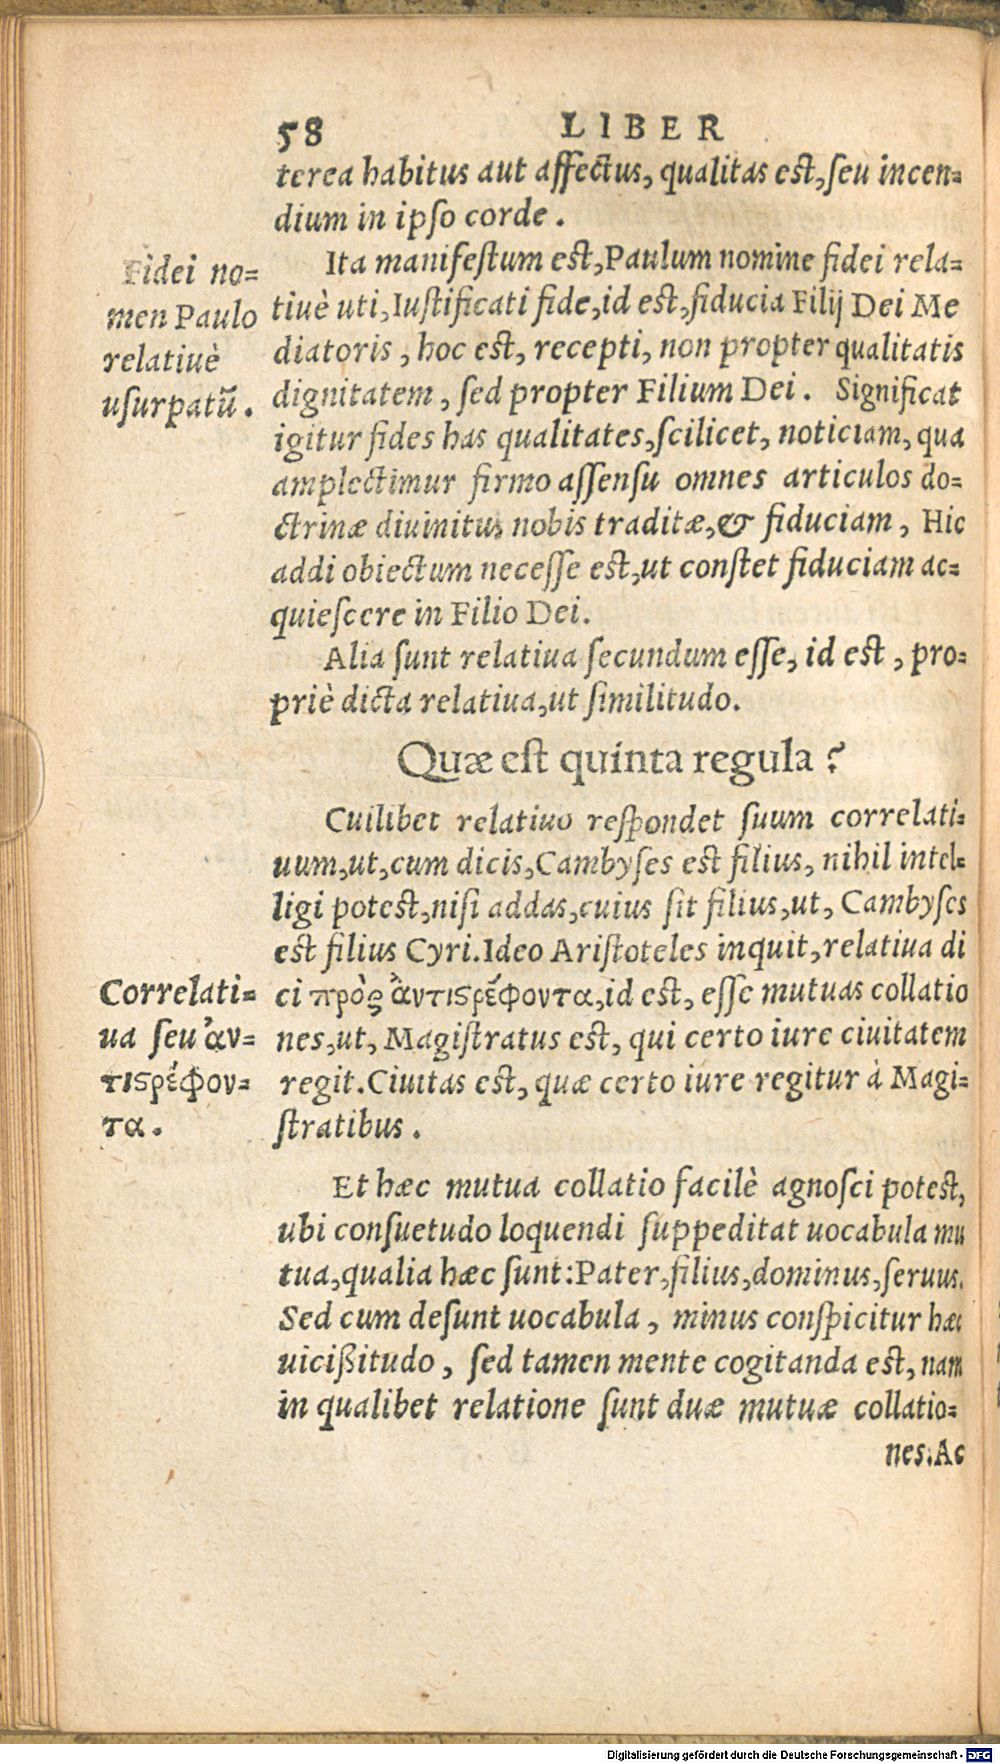 58 LIBER
terea habitus aut affectus, qualitas est, seu incen=
dium in ipso corde.
Fidei no=
men Paulo
relatiuè
usurpatũ.
Ita manifestum est, Paulum nomine fidei rela=
tiuè uti, Iustificati fide, id est, fiducia Filij Dei Me
diatoris, hoc est, recepti, non propter qualitatis
dignitatem, sed propter Filium Dei. Significat
igitur fides has qualitates, scilicet, noticiam, qua
amplectimur firmo assensu omnes articulos do=
ctrinæ diuinitus nobis traditæ, & fiduciam, Hic
addi obiectum necesse est, ut constet fiduciam ac=
quiescere in Filio Dei.
Alia sunt relatiua secundum esse, id est, pro=
priè dicta relatiua, ut similitudo.
Quæ est quinta regula?
Cuilibet relatiuo respondet suum correlati=
uum, ut, cum dicis, Cambyses est filius, nihil intel=
ligi potest, nisi addas, cuius sit filius, ut, Cambyses
est filius Cyri. Ideo Aristoteles inquit, relatiua di
ci πρὸς ἀντιϛρέφοντα, id est, esse mutuas collatio
nes, ut, Magistratus est, qui certo iure ciuitatem
regit. Ciuitas est, quæ certo iure regitur à Magi=
stratibus.
Correlati=
ua seu ἀν=
τιϛρέφον=
τα.
Et hæc mutua collatio facilè agnosci potest,
ubi consuetudo loquendi suppeditat uocabula mu
tua, qualia hæc sunt: Pater, filius, dominus, seruus.
Sed cum desunt uocabula, minus conspicitur hæc
uicißitudo, sed tamen mente cogitanda est, nam
in qualibet relatione sunt duæ mutuæ collatio=
nes. Ac
Digitalisierung gefördert durch die Deutsche Forschungsgemeinschaft - DFG